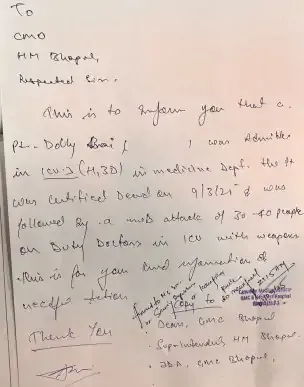 To
CMO
HM Bhopal,
Respected Sir.
This is to inform you that a
Pt- Dolly Bai ( ) was Admitted
in ICU-3 (H,3D) in medicine Dept. the Pt
was certified Dead on 9/3/25 & was
followed by a mob attack of 30-40 people
on Duty Doctors in ICU with weapons
This is for your kind information &
needful action
Thank You
Copy to
Dean, GMC Bhopal
Superintendent, HM Bhopal
JDA, GMC Bhopal,